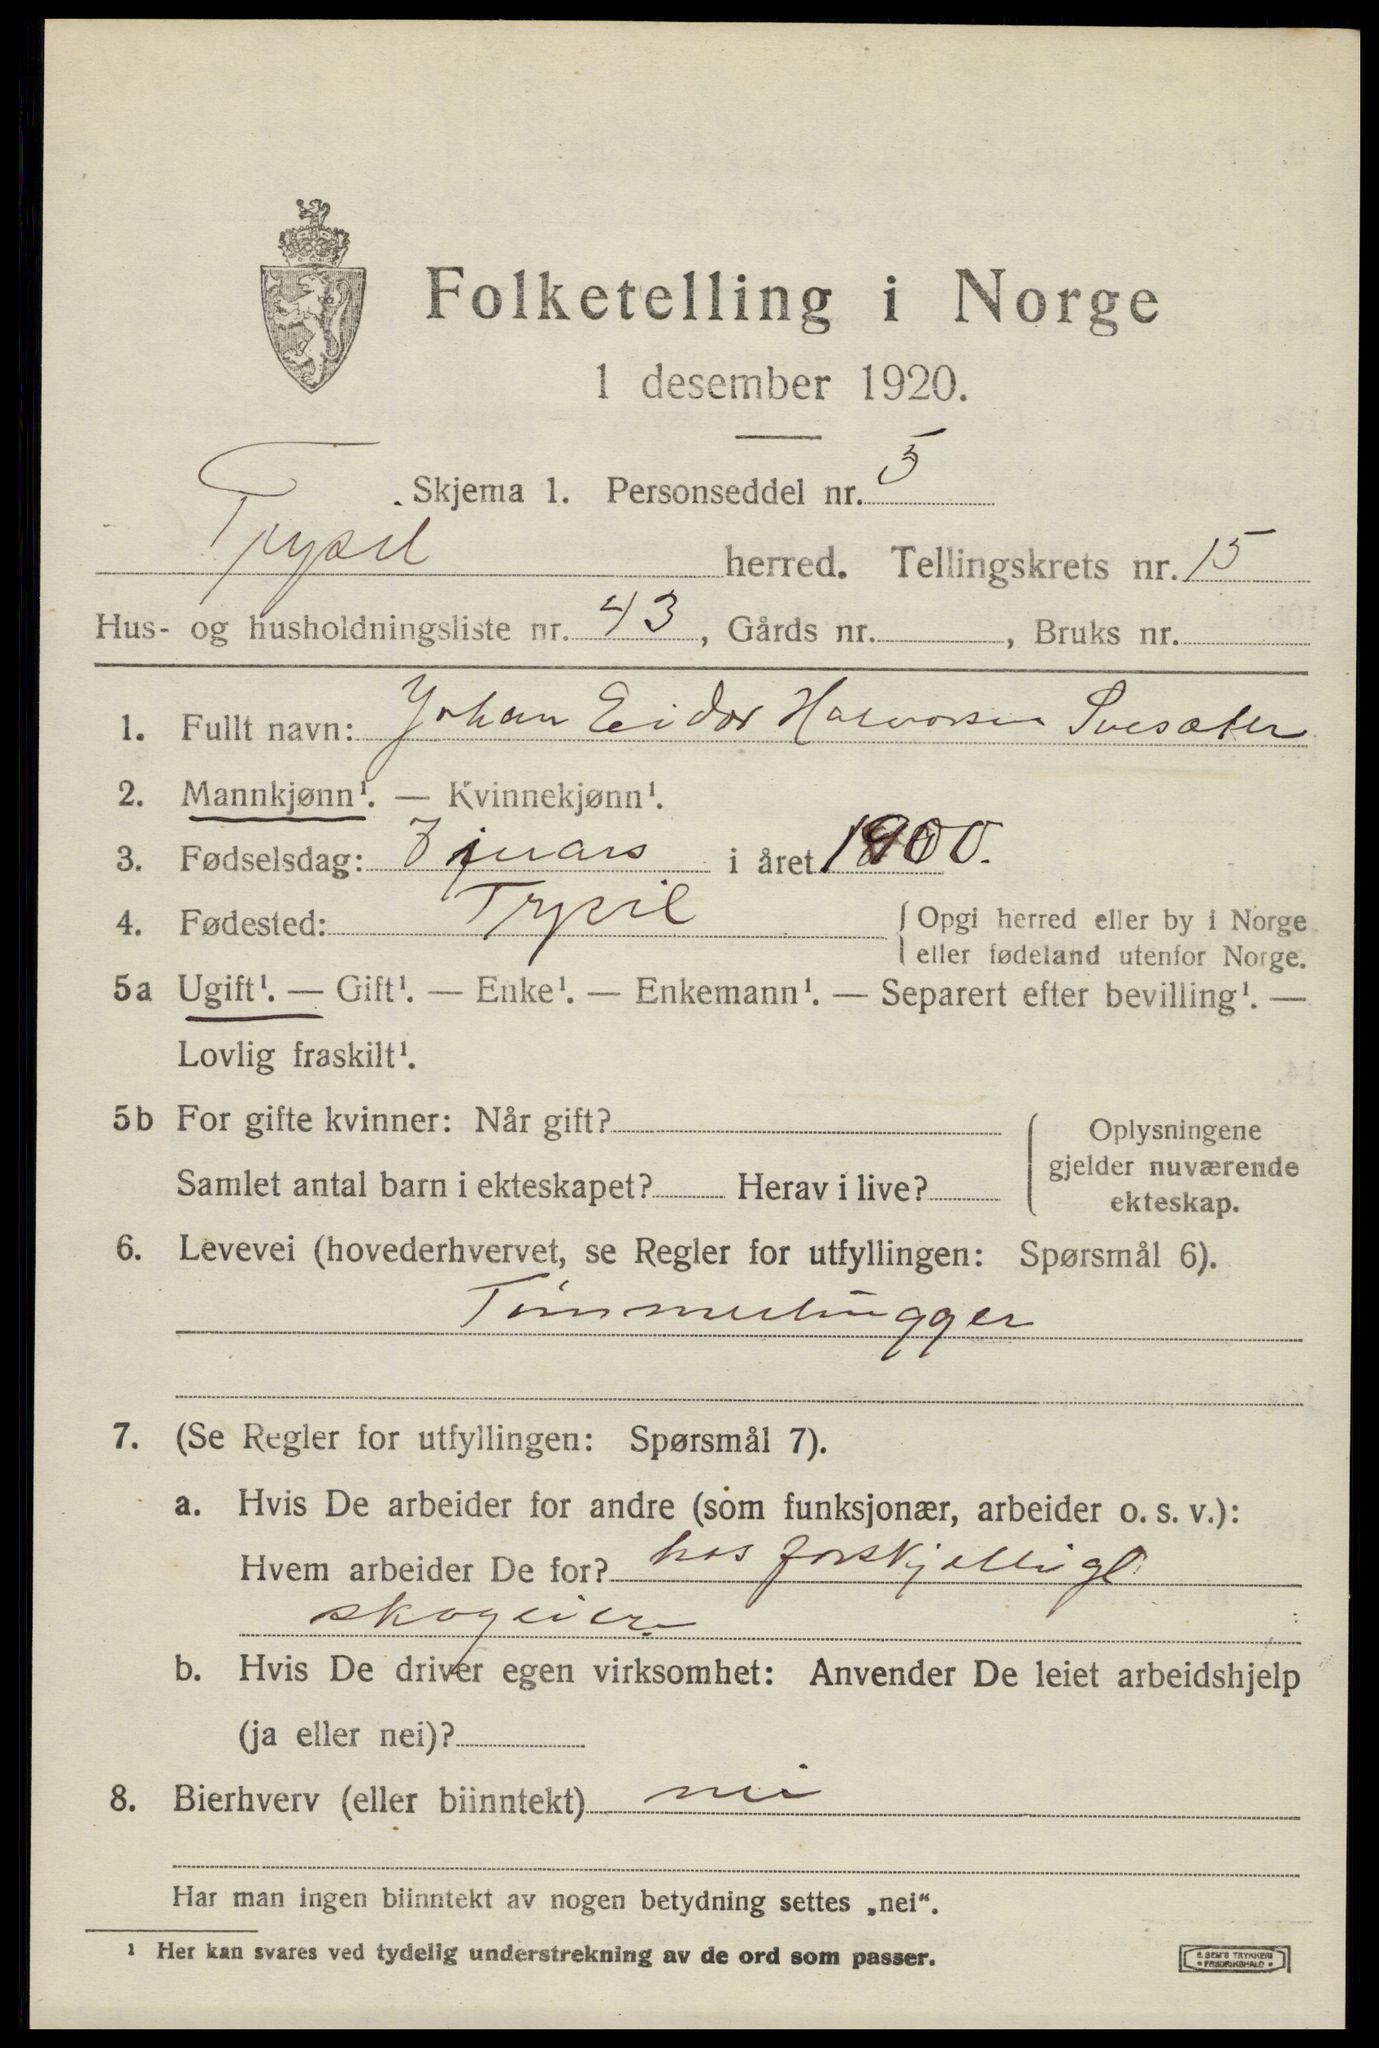 Folketelling i Norge
1 desember 1920.
Skjema 1. Personseddel nr. 5
Trysil herred. Tellingskrets nr. 15
Hus- og husholdningsliste nr. 43, Gårds nr. , Bruks nr.
1. Fullt navn: Johan Eidar Halvorsen Svesæter
2. Mannkjønn¹. — Kvinnekjønn¹.
3. Fødselsdag: 7 mars i året 1900.
4. Fødested: Trysil { Opgi herred eller by i Norge
eller fødeland utenfor Norge.
5a Ugift¹. — Gift¹. — Enke¹. — Enkemann¹. — Separert efter bevilling¹. —
Lovlig fraskilt¹.
5b For gifte kvinner: Når gift? { Oplysningene
gjelder nuværende
Samlet antal barn i ekteskapet? Herav i live?
ekteskap.
6. Levevei (hovederhvervet, se Regler for utfyllingen: Spørsmål 6).
Tømmerhugger
7. (Se Regler for utfyllingen: Spørsmål 7).
a. Hvis De arbeider for andre (som funksjonær, arbeider o. s. v.):
Hvem arbeider De for? hos forskjellige
skogeiere
b. Hvis De driver egen virksomhet: Anvender De leiet arbeidshjelp
(ja eller nei)?
8. Bierhverv (eller biinntekt) nei
Har man ingen biinntekt av nogen betydning settes „nei“.
¹ Her kan svares ved tydelig understrekning av de ord som passer.
E. SEM'S TRYKKERI
FREDRIKSHALD